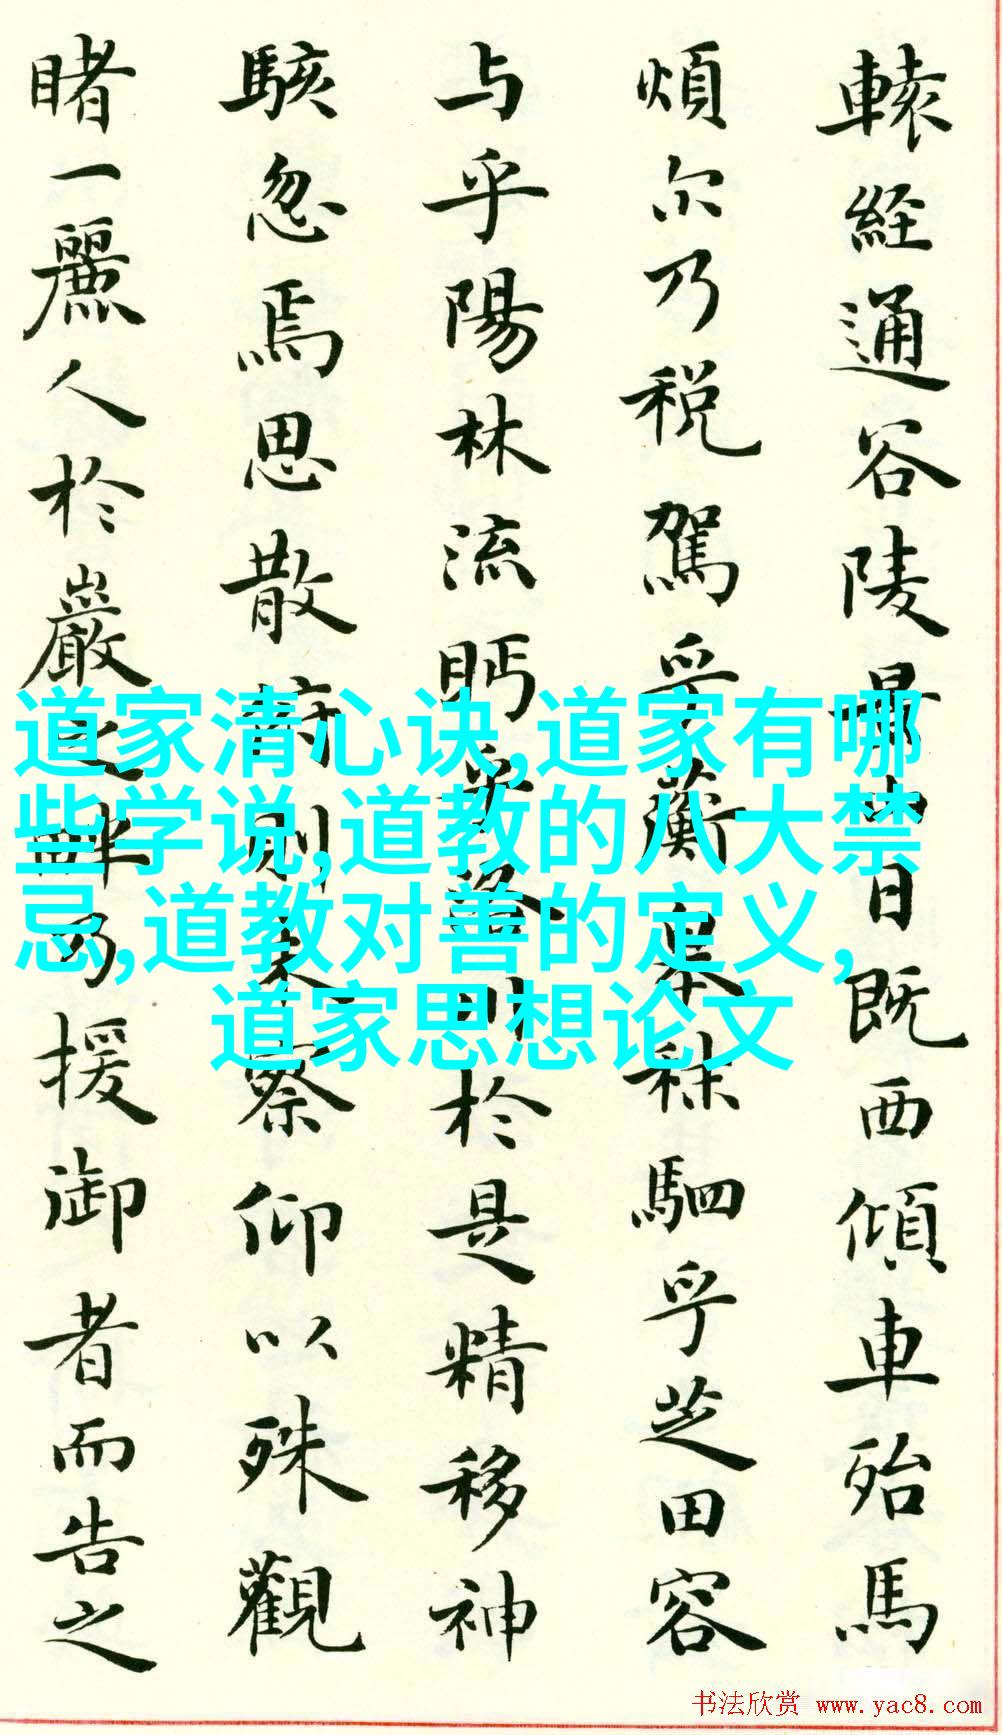 轅経通谷陵景山日既西傾車殆馬
煩尔乃税駕乎蘅皋秣駟乎芝田容
与乎陽林流眄乎洛川於是精移神
駭忽焉思散俯則未察仰以殊觀
睹一麗人於巖之畔乃援御者而告之
道家清心诀,道家有哪
些学说,道教的八大禁
忌,道教对善的定义,
道家思想论文
书法欣赏 www.yac8.com